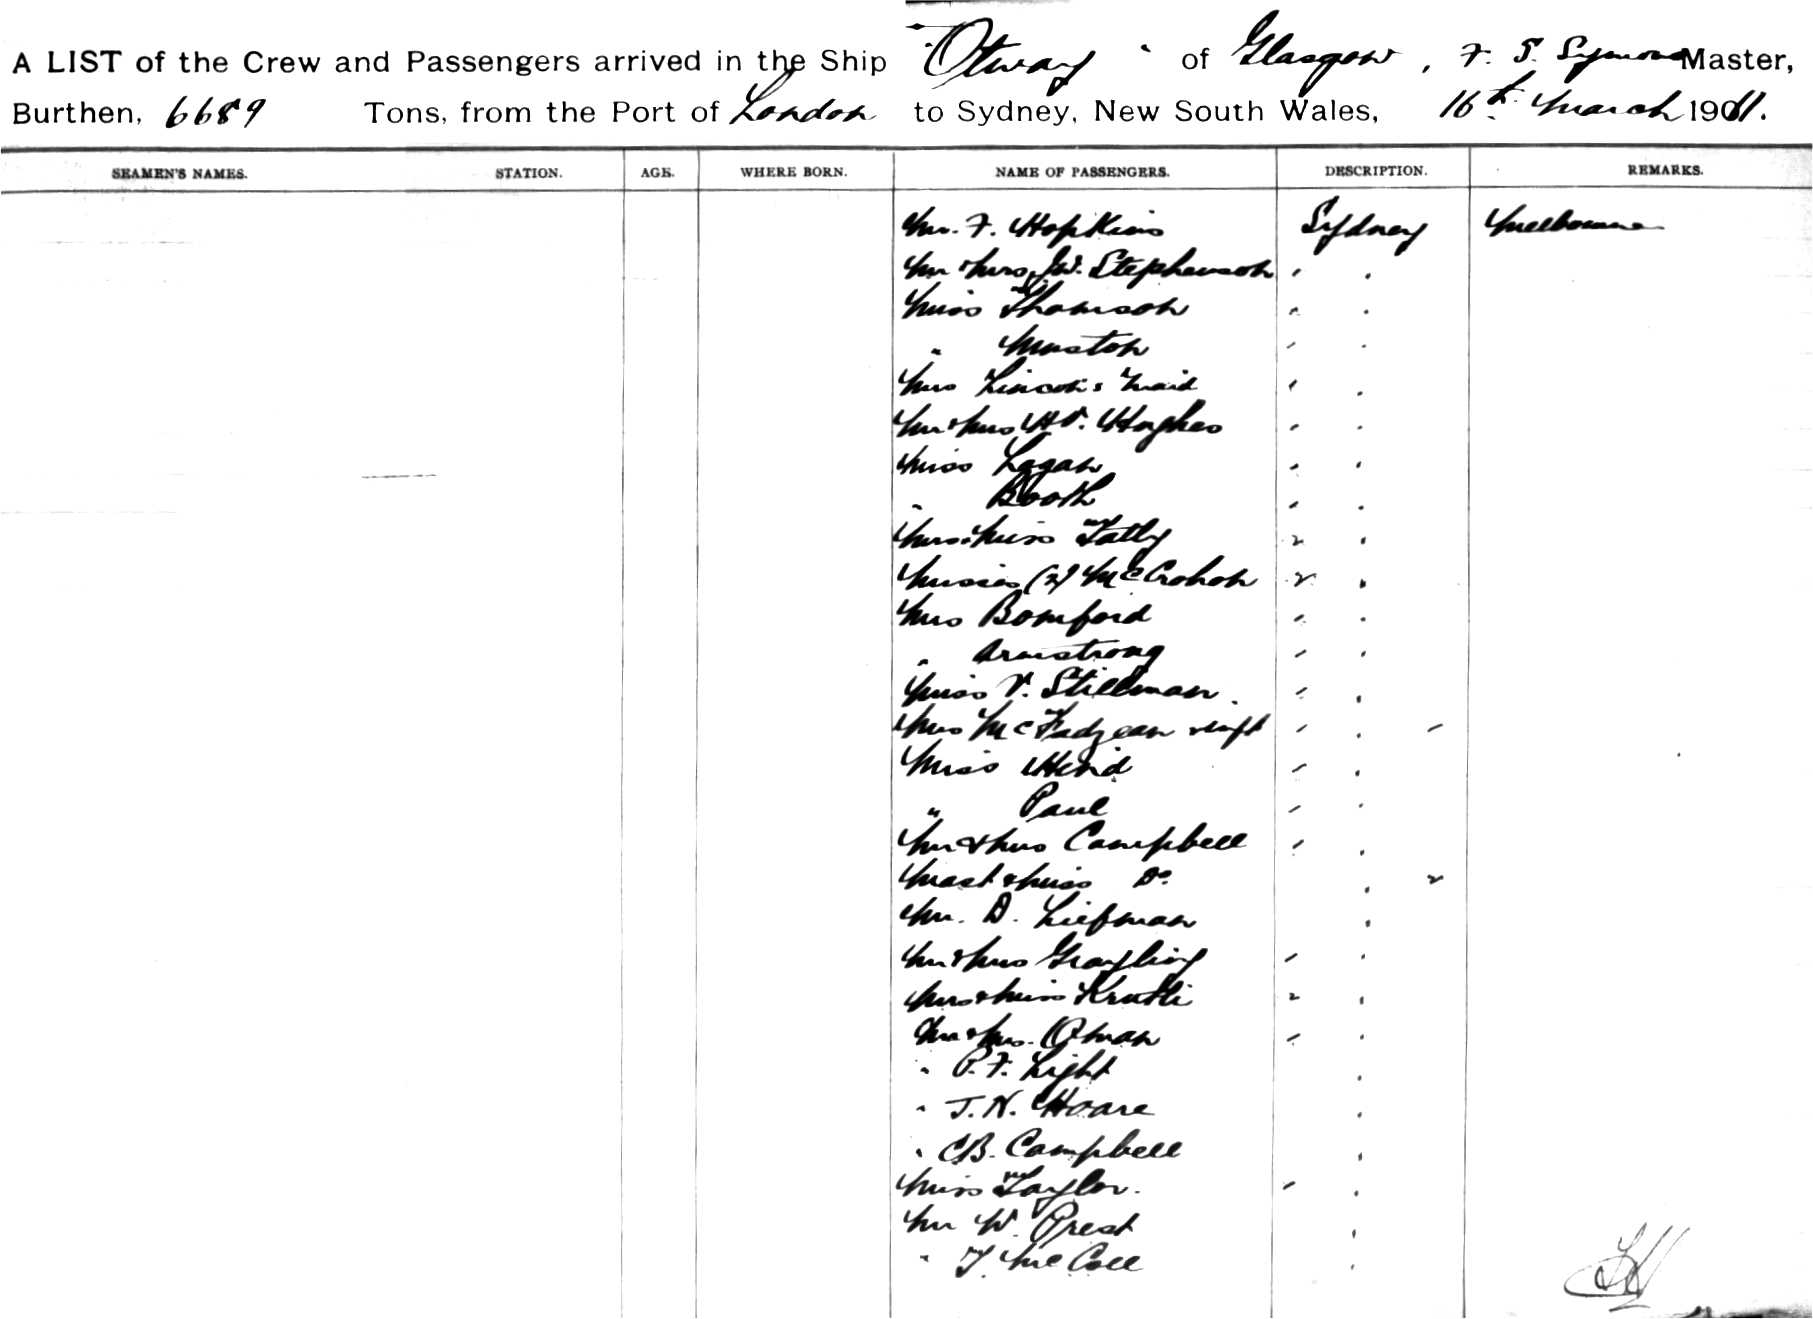 A LIST of the Crew and Passengers arrived in the Ship "Otway" of Glasgow, F. S. Symons Master,
Burthen, 6689 Tons, from the Port of London to Sydney, New South Wales, 16th March 1911.
SEAMEN'S NAMES. STATION. AGE. WHERE BORN. NAME OF PASSENGERS. DESCRIPTION. REMARKS.
Mr. F. Hopkins Sydney Melbourne
Mr & Mrs J.W. Stephenson " "
Miss Thomson " "
" Muston " "
Mrs Lincoln & maid " "
Mr & Mrs H.V. Hughes " "
Miss Logan " "
" Booth " "
Mrs & Miss Tatly 2 "
Misses (2) McCrohon 2 "
Mrs Bomford " "
" Armstrong " "
Miss V. Stillman " "
Mrs McFadzean & inft " " -
Miss Hind " "
" Paul " "
Mr & Mrs Campbell " "
Mast & Miss Do " 2
Mr. D. Liefman "
Mr & Mrs Grayling " "
Mrs & Miss Krutli 2 "
Mr & Mrs. Oman " "
" P. F. Light "
" J. N. Hoare "
" C.B. Campbell "
Miss Taylor. " "
Mr W. Prest "
" T. McColl "